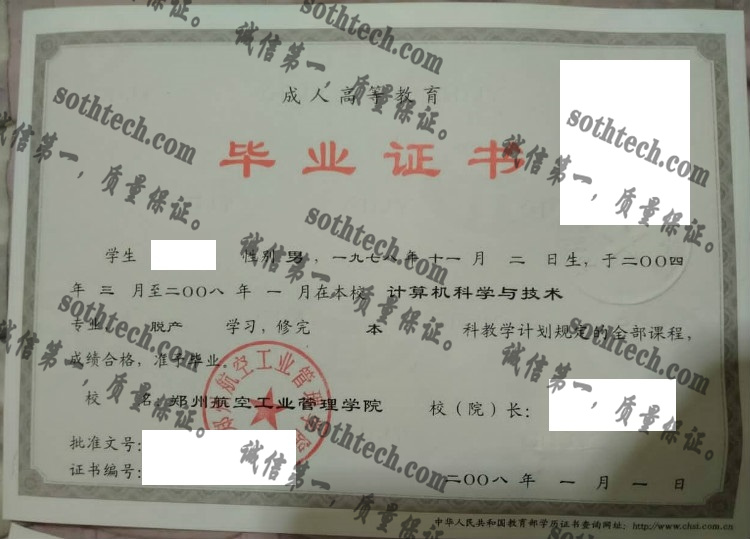 成人高等教育
毕业证书
学生 性别 男，一九七八年十一月 二 日生，于二〇〇四
年 三 月至二〇〇八年 一 月在本校 计算机科学与技术
专业 脱产 学习，修完 本 科教学计划规定的全部课程，
成绩合格，准予毕业。
郑州航空工业管理学院
校 名：郑州航空工业管理学院 校（院）长：
批准文号：
证书编号： 二〇〇八年 一 月 一 日
中华人民共和国教育部学历证书查询网址：http://www.chsi.com.cn
sothtech.com
诚信第一，质量保证。
sothtech.com
诚信第一，质量保证。
sothtech.com
诚信第一，质量保证。
sothtech.com
诚信第一，质量保证。
sothtech.com
诚信第一，质量保证。
sothtech.com
诚信第一，质量保证。
sothtech.com
诚信第一，质量保证。
sothtech.com
诚信第一，质量保证。